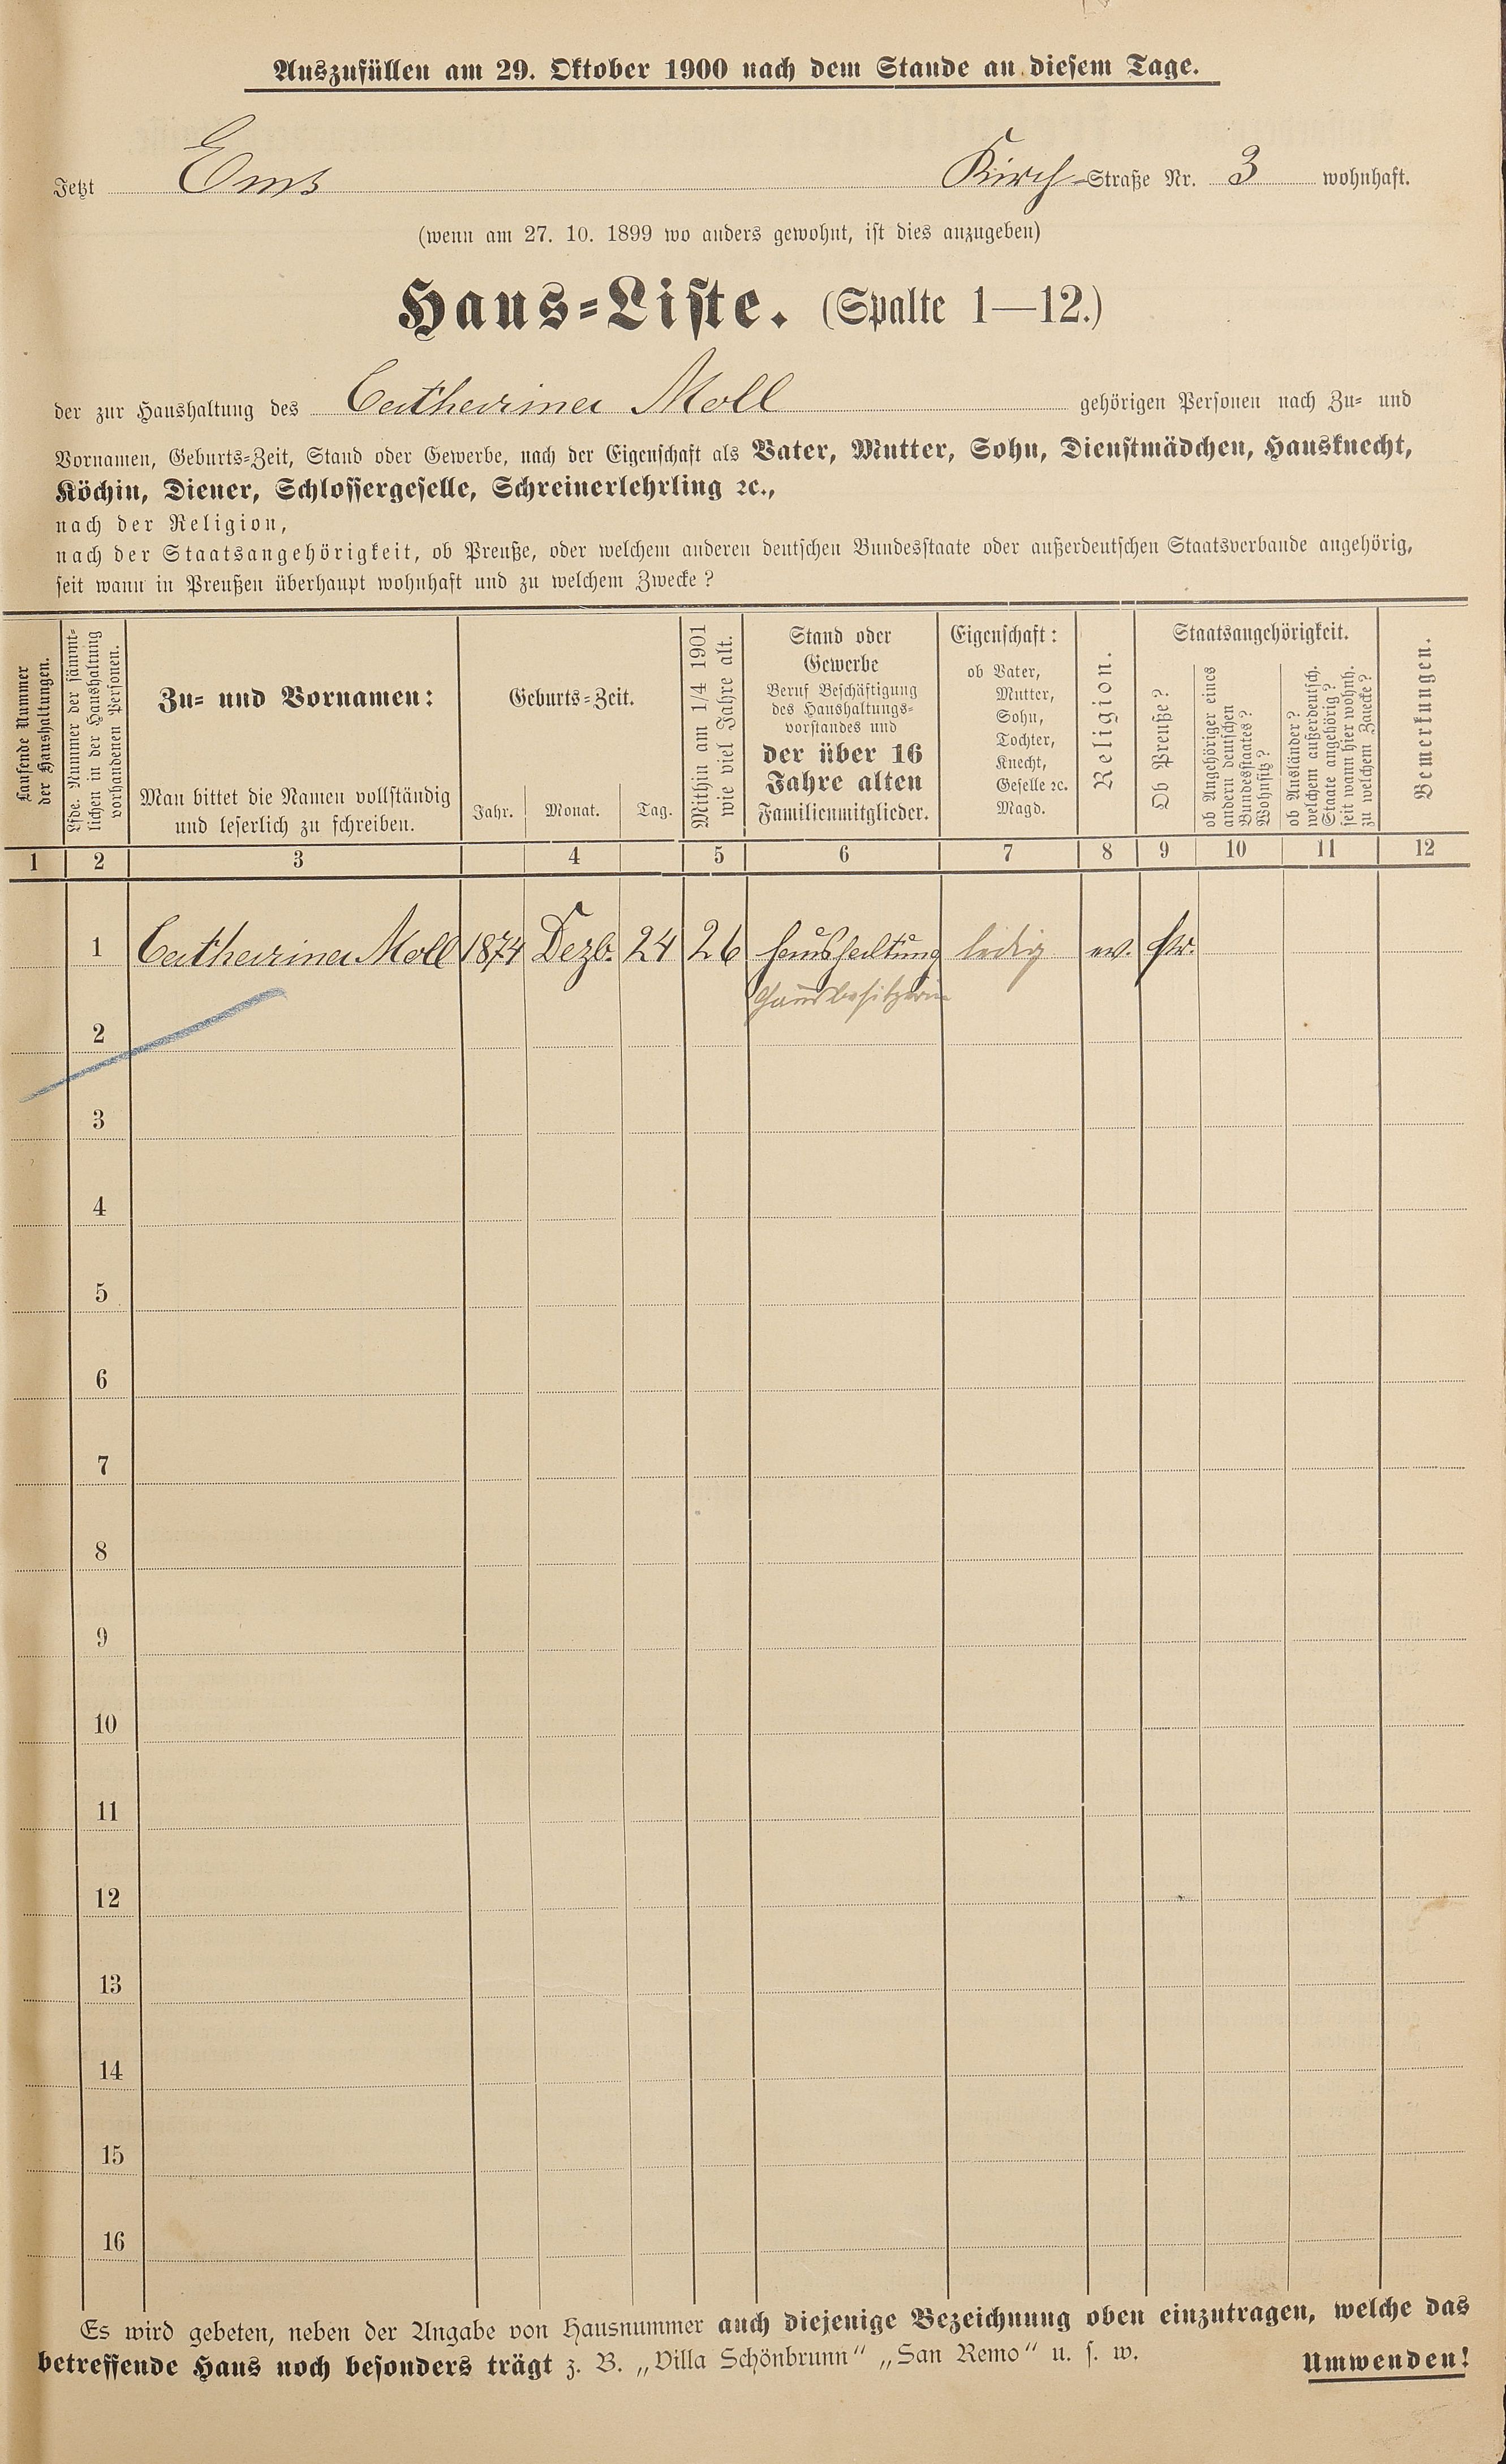 Auszufüllen am 29. Oktober 1900 nach dem Stande an diesem Tage.
Jetzt Ems Kirch-Straße Nr. 3 wohnhaft.
(wenn am 27. 10. 1899 wo anders gewohnt, ist dies anzugeben)
Haus-Liste. (Spalte 1—12.)
der zur Haushaltung des Catharina Moll gehörigen Personen nach Zu- und
Vornamen, Geburts-Zeit, Stand oder Gewerbe, nach der Eigenschaft als Vater, Mutter, Sohn, Dienstmädchen, Hausknecht,
Köchin, Diener, Schlossergeselle, Schreinerlehrling ꝛc.,
nach der Religion,
nach der Staatsangehörigkeit, ob Preuße, oder welchem anderen deutschen Bundesstaate oder außerdeutschen Staatsverbande angehörig,
seit wann in Preußen überhaupt wohnhaft und zu welchem Zwecke?
Laufende Nummer
der Haushaltungen.
Lfde. Nummer der sämmt-
lichen in der Haushaltung
vorhandenen Personen.
Zu- und Vornamen:
Man bittet die Namen vollständig
und leserlich zu schreiben.
Geburts-Zeit.
Jahr. Monat. Tag.
Mithin am 1/4 1901
wie viel Jahre alt.
Stand oder
Gewerbe
Beruf Beschäftigung
des Haushaltungs-
vorstandes und
der über 16
Jahre alten
Familienmitglieder.
Eigenschaft:
ob Vater,
Mutter,
Sohn,
Tochter,
Knecht,
Geselle ꝛc.
Magd.
Religion.
Staatsangehörigkeit.
Ob Preuße?
ob Angehöriger eines
andern deutschen
Bundesstaates?
Wohnsitz?
ob Ausländer?
welchem außerdeutsch.
Staate angehörig?
seit wann hier wohnh.
zu welchem Zwecke?
Bemerkungen.
1 2 3 4 5 6 7 8 9 10 11 12
1 Catharina Moll 1874 Dezb. 24 26 haushaltung ledig ev. Pr.
Hausbesitzerin
2
3
4
5
6
7
8
9
10
11
12
13
14
15
16
Es wird gebeten, neben der Angabe von Hausnummer auch diejenige Bezeichnung oben einzutragen, welche das
betreffende Haus noch besonders trägt z. B. „Villa Schönbrunn“ „San Remo“ u. s. w.
Umwenden!